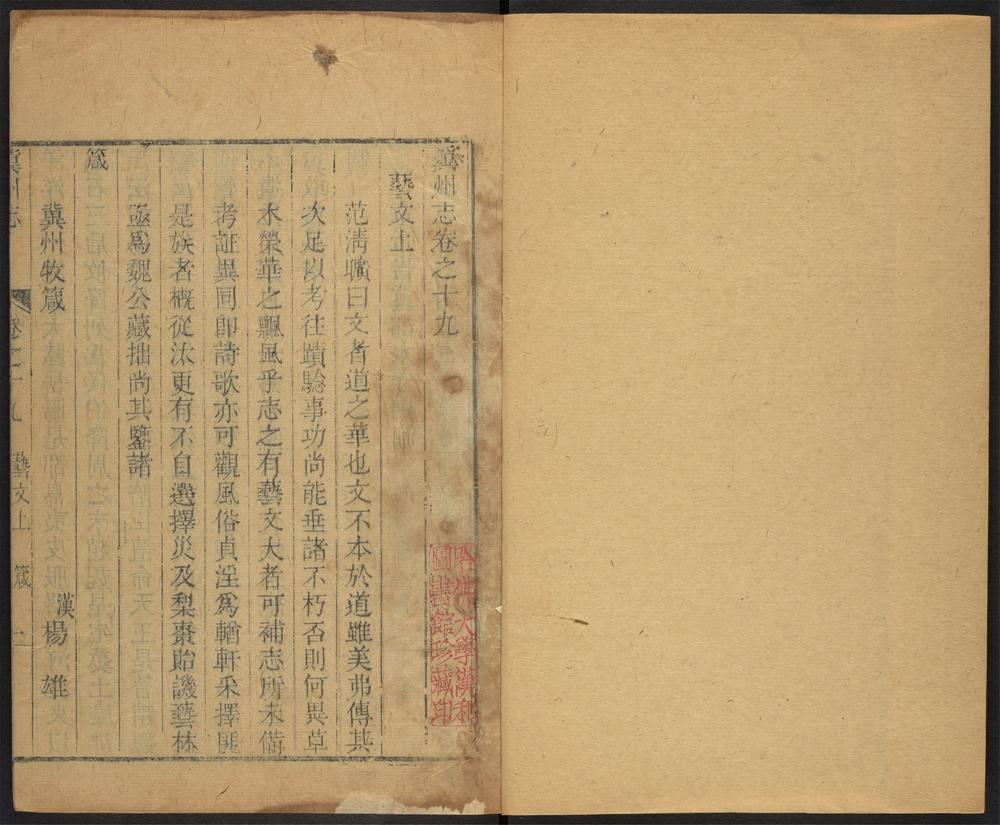 冀州志卷之十九
藝文上
范淸曠曰文者道之華也文不本於道雖美弗傳其
次足以考往蹟驗事功尚能垂諸不朽否則何異草
木榮華之飄風乎志之有藝文大者可補志所未備
考証異同即詩歌亦可觀風俗貞淫爲輶軒采擇匪
是族者槪從汰更有不自選擇災及梨棗貽譏藝林
亟爲魏公藏拙尚其鑒諸
箴
冀州牧箴 漢楊雄
冀州志 卷之十九 藝文上 箴 一
哈佛大學漢和
圖書館珍藏印